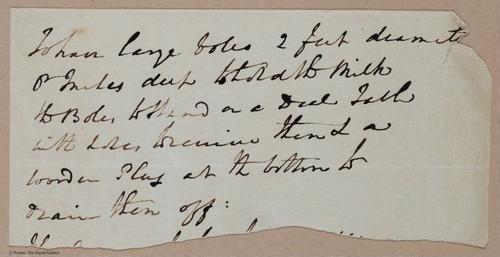 To have large Boles 2 feet diameter
8 Inches deep to hold the Milk
the Boles to Stand on a Deal Table
with holes to receive them & a
wooden Plug at the bottom to
drain them off:
© Pioneer: The Digital Gallery